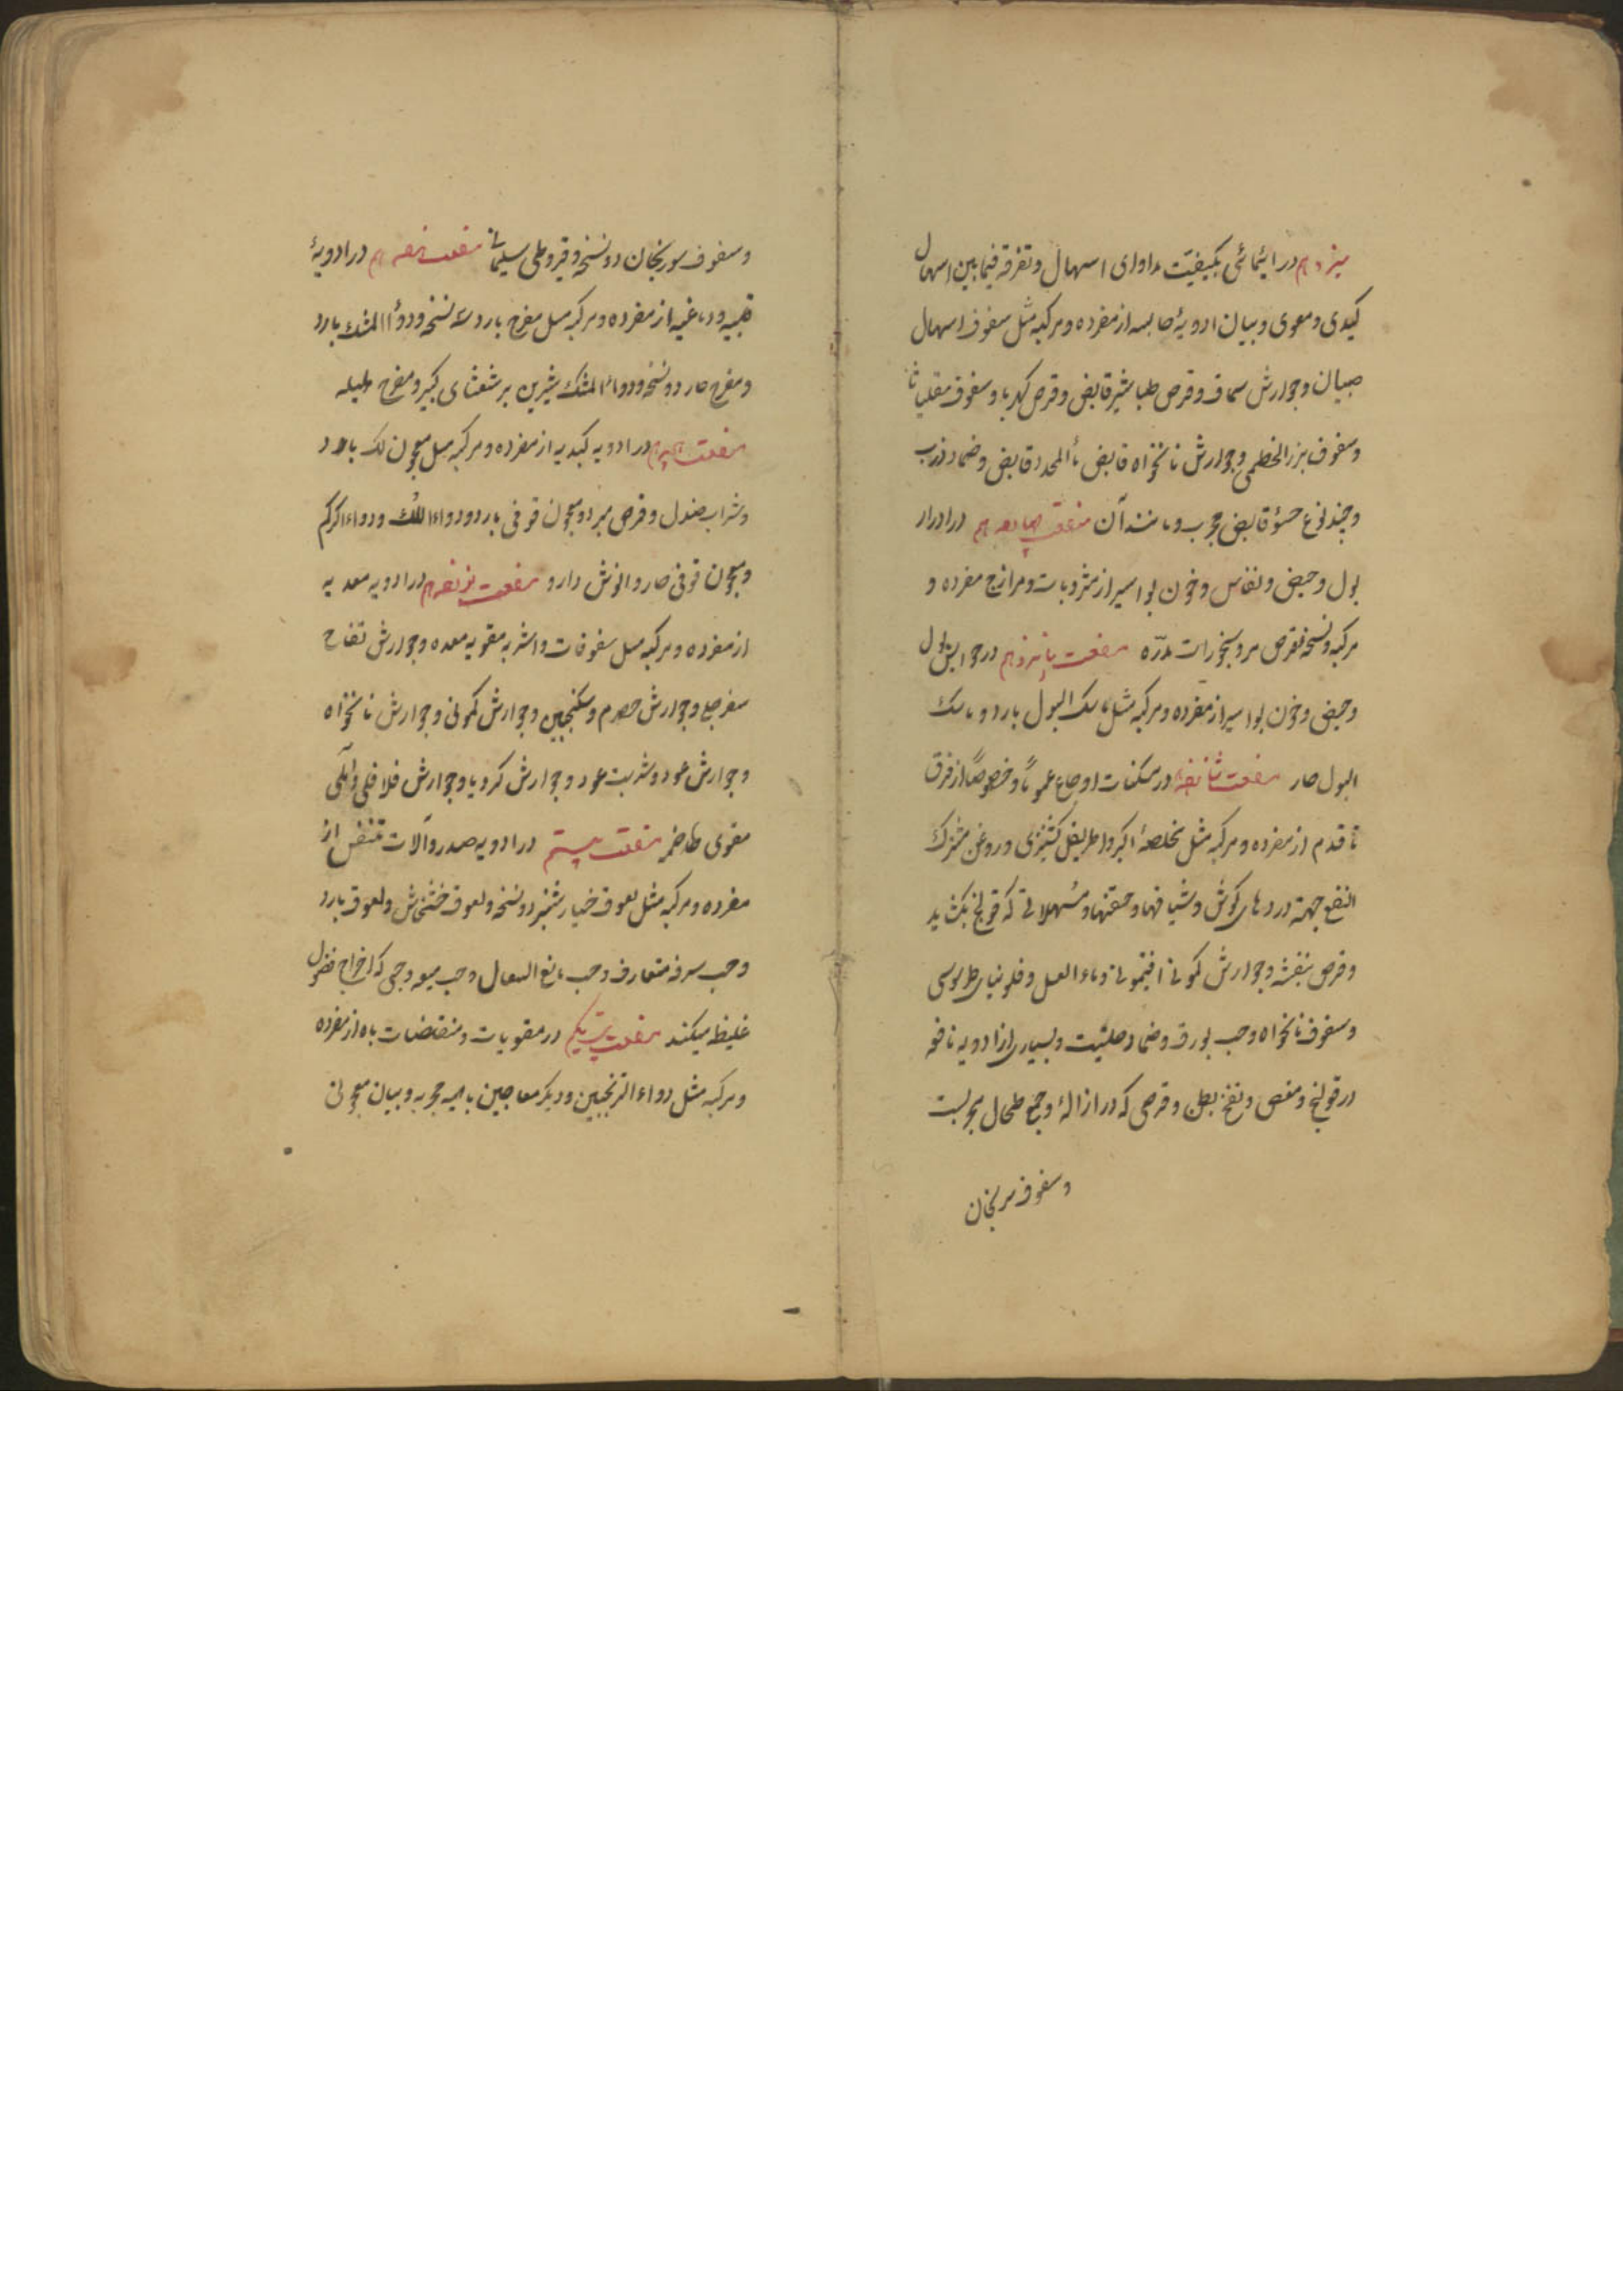 سیزدهم در ایمائی بکیفیت مداوای اسهال و تفرقه فیمابین اسهال
کبدی و معوی و بیان ادویهٔ حابسه از مفرده و مرکبه مثل سفوف اسهال
صبیان و جوارش سماق و قرص طباشیر قابض و قرص کهربا و سفوف مقلیاثا
و سفوف بزر الخطمی و جوارش نانخواه قابض ماٗ المحدد قابض و ضماد ذرب
و چند نوع حسو قابض مجرب و مانند آن منفعت چهاردهم در ادرار
بول و حیض و نفاس و خون بواسیر از مشروبات و فرازج مفرده و
مرکبه و نسخه قرص مر و بخورات مدرّه منفعت پانزدهم در حوابس بول
و حیض و خون بواسیر از مفرده و مرکبه مثل ماسک البول بارد و ماسک
البول حار منفعت شانزدهم در مسکنات اوجاع عموماً و خصوصاً از فرق
تا قدم از مفرده و مرکبه مثل مخلصهٔ اکبر و اطریفل کشنیزی و روغن مشترک
النفع جهة دردهای کوش و شیافها و حقنها و مسهلاتی که قولنج بکشاید
و قرص بنفشه و جوارش کمونی افتیمونی و ماء العسل و فلونیای طرسوسی
و سفوف نانخواه و حب بورق و ضماد حلتیت و بسیاری از ادویه نافعه
در قولنج و مغص و نفخ بطن و قرصی که در ازالهٔ وجع طحال مجربست
و سفوف سورنجان
و سفوف سورنجان دو نسخه و قیروطی سلیمانی منفعت هفدهم در ادویهٔ
قلبیه و دماغیه از مفرده و مرکبه مثل مفرح بارد سه نسخه و دواٗ المشک بارد
و مفرح حار دو نسخه و دواٗ المشک شیرین برشعثای کبیر و مفرح هلیله
منفعت هیجدهم در ادویه کبدیه از مفرده و مرکبه مثل معجون لک بارد
و شراب صندل و قرص مبرد و معجون قوفی بارد و دواء اللک و دواء الکرکم
و معجون قوفی حار و انوش دارو منفعت نوزدهم در ادویه معدیه
از مفرده و مرکبه مثل سفوفات و اشربه مقویه معده و جوارش تفاح
سفرجلی و جوارش حصرم و سکنجبین و جوارش کمونی و جوارش نانخواه
و جوارش عود و شربت عود و جوارش کرویا و جوارش فلافلی و آملی
مقوی هاضمه منفعت بیستم در ادویه صدر و آلات تنفس از
مفرده و مرکبه مثل لعوق خیارشنبر دو نسخه و لعوق خشخاش و لعوق بارد
و حب سرفه متعارف و حب مانع السعال و حب میعه و حبی که اخراج فضول
غلیظ میکند منفعت بیست یکم در مقویات و منقضات باه از مفرده
و مرکبه مثل دواء الترنجبین و دیکر معاجین باهیه مجربه و بیان معجونی